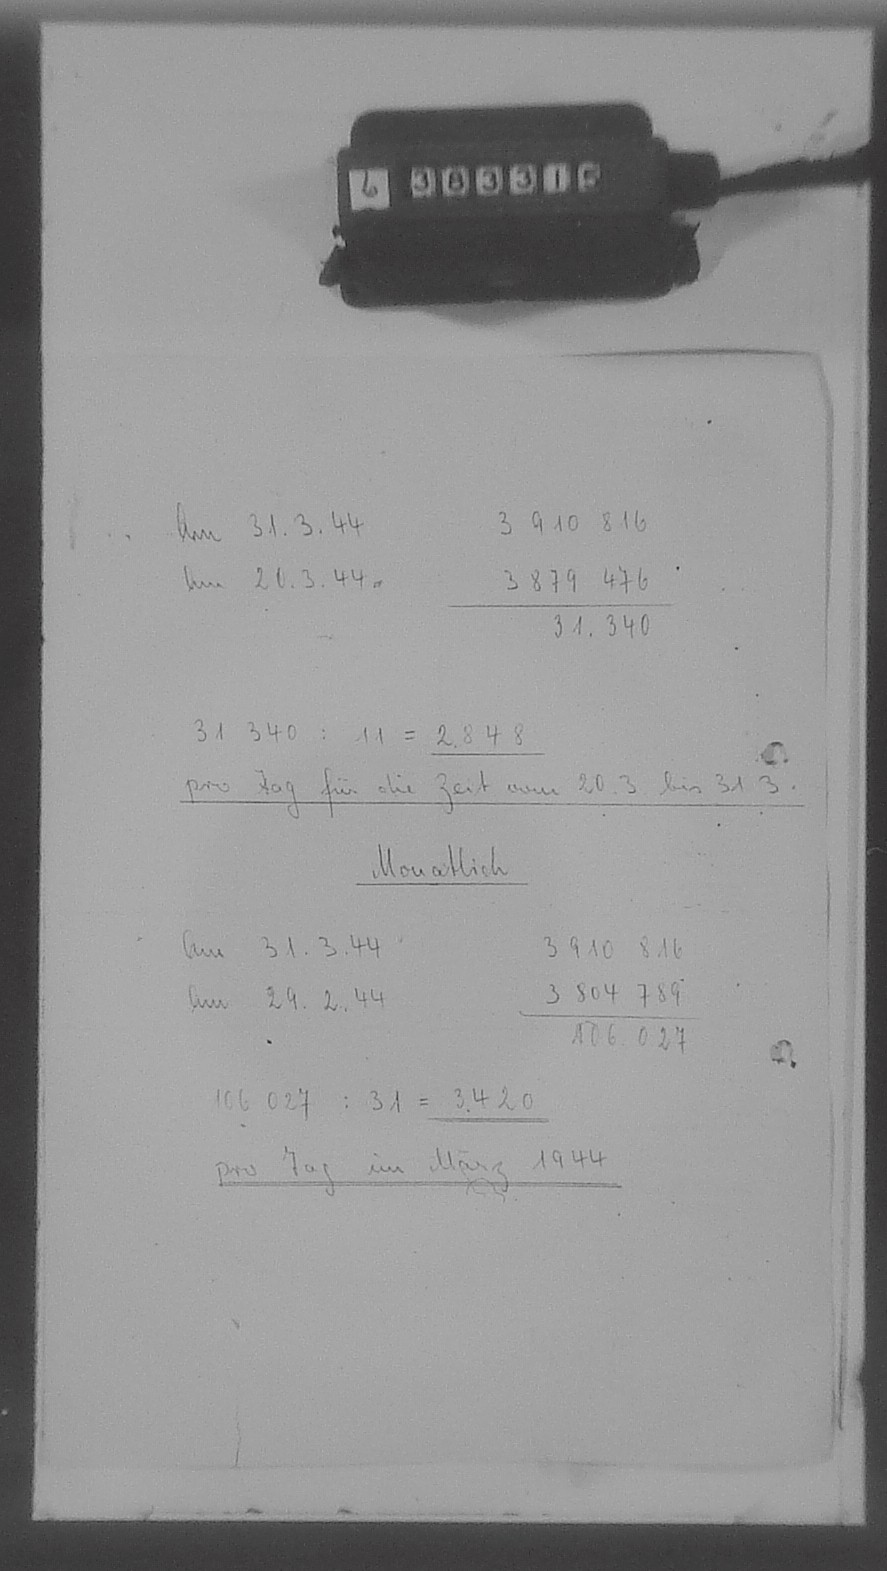 6 383315
Am 31.3.44 3 910 816
Am 20.3.44. 3 879 476
31.340
31 340 : 11 = 2.848
pro Tag für die Zeit vom 20.3 bis 31 3.
Monatlich
Am 31.3.44 3 910 816
Am 29.2.44 3 804 789
106.027
106 027 : 31 = 3.420
pro Tag im März 1944